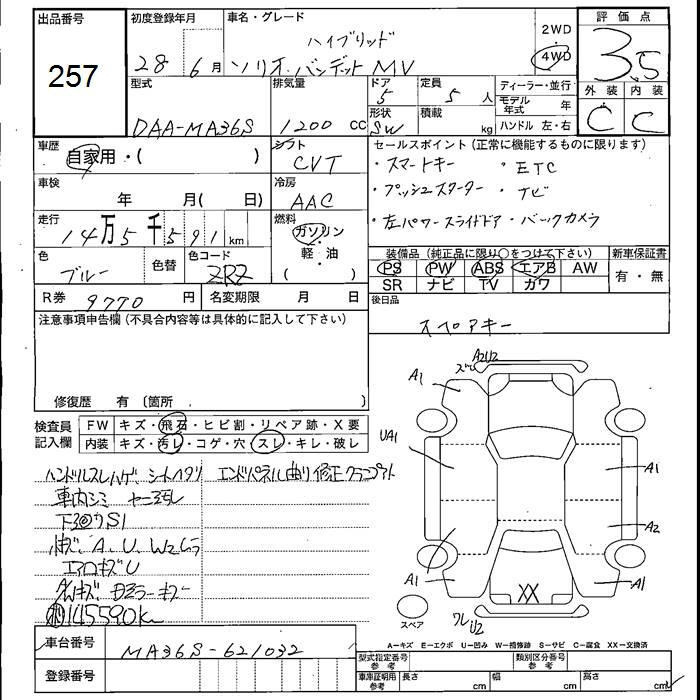 出品番号
257
初度登録年月
28年6月
車名・グレード
ハイブリッド
ソリオ・バンデットMV
2WD
4WD
評価点
3.5
外装 内装
C C
型式
DAA-MA36S
排気量
1200cc
ドア
5
形状
SW
定員
5人
積載
kg
ディーラー・並行
モデル年式 年
ハンドル 左・右
車歴
自家用・( )
シフト
CVT
車検
年 月( 日)
冷房
AAC
走行
14万5千591km
燃料
ガソリン
・
軽・油
( )
色
ブルー
色替
色コード
ZRZ
R券 9770円
名変期限 月 日
セールスポイント(正常に機能するものに限ります)
・スマートキー ・ETC
・プッシュスターター ・ナビ
・左パワースライドドア・バックカメラ
装備品(純正品に限り○をつけて下さい)
PS PW ABS エアB AW
SR ナビ TV カワ
新車保証書
有・無
後日品
スペアキー
注意事項申告欄(不具合内容等は具体的に記入して下さい)
修復歴 有〔箇所 〕
検査員記入欄
FW キズ・飛石・ヒビ割・リペア跡・X要
内装 キズ・汚レ・コゲ・穴・スレ・キレ・破レ
ハンドルスレハゲ、シートヘタリ
エンドパネル曲り修正
車内シミ
下3 S1
A、U、W2
エアロキズU
145590km
A1
A2U2
A1
UA1
A1
A2
A1
A1
XX
ワレU2
スペア
A-キズ E-エクボ U-凹み W-補修跡 S-サビ C-腐食 XX-交換済
車台番号
MA36S-621032
登録番号
型式指定番号 参考
類別区分番号 参考
車庫証明用 参考
長さ cm
幅 cm
高さ cm